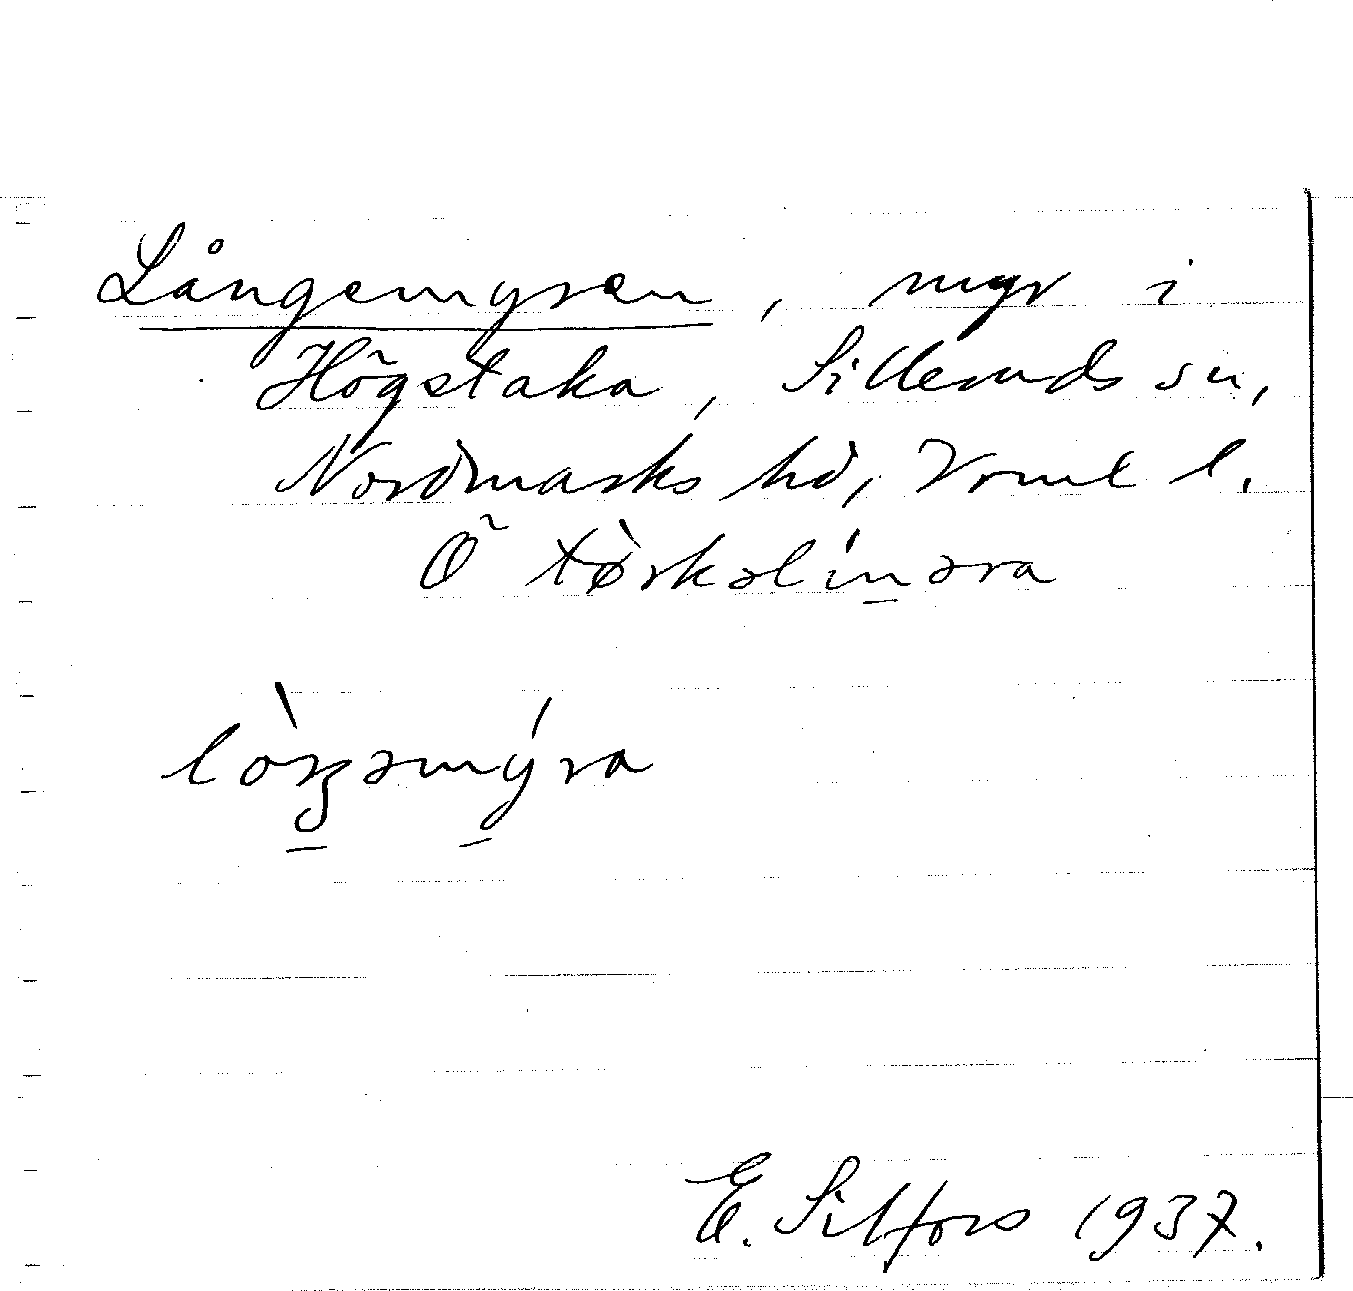 Långemyren, myr i
Högstaka, Silleruds sn,
Nordmarks hd, Vrml l.
Ö tø̀rkəlínəra
lòŋəmýra
E. Silfors 1937.